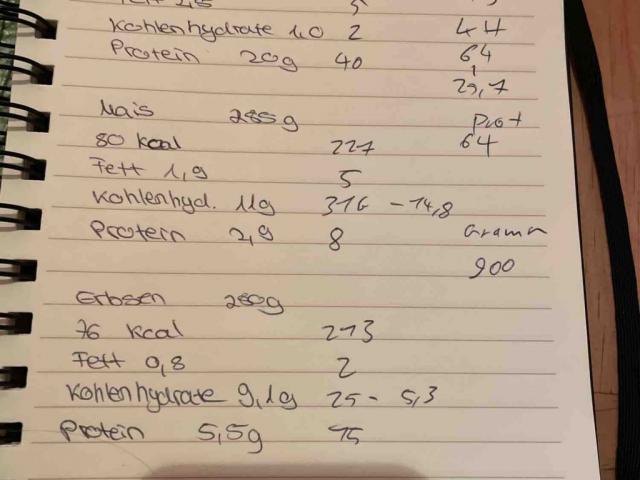 Kohlenhydrate 1,0 2 44
Protein 20g 40 64
29,7
Mais 285g Prot
80 kcal 227 64
Fett 1,9 5
Kohlenhyd. 11g 31G - 14,8
Protein 2,9 8 Gramm
900
Erbsen 280g
76 kcal 213
Fett 0,8 2
Kohlenhydrate 9,1g 25 - 5,3
Protein 5,5g 15